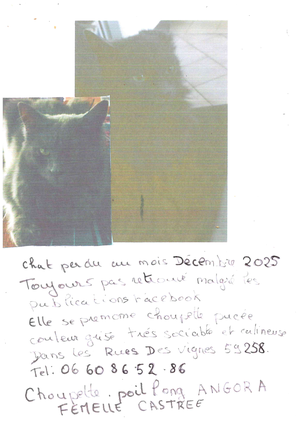 chat perdu au mois Décembre 2025
Toujours pas retrouvé malgré les
publications Facebook
Elle se prénome choupette pucée
couleur grise très sociable et calineuse
Dans les Rues Des vignes 59258.
Tel: 06 60 86 52 . 86
Choupette . poil long ANGORA
FEMELLE CASTREE